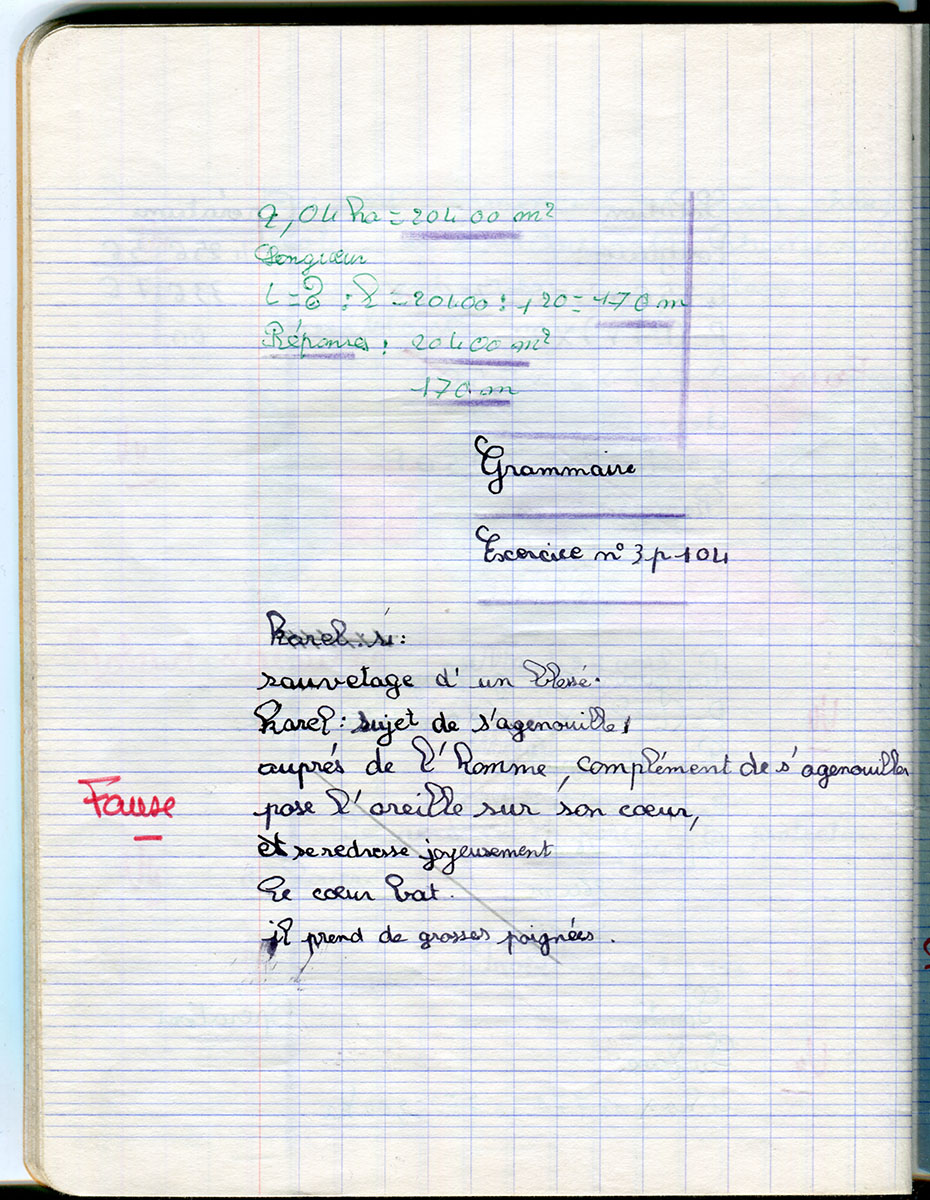 2,04 ha = 20400 m²
Longueur
L = ? : l = 20400 : 120 = 170 m
Réponses : 20400 m²
170 m
Grammaire
Exercice n° 3 p 104
Karel
sauvetage d'un blessé.
Karel : sujet de s'agenouille,
auprés de l'homme, complément de s'agenouiller
Fause
pose l'oreille sur son cœur,
et se redresse joyeusement
Le cœur bat.
il prend de grosses poignées.